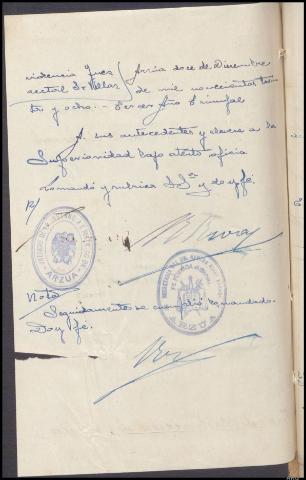 Providencia Juez / Arzúa doce de Diciembre
acctal Sr Villar / de mil novecientos trein-
ta y ocho.- Tercer Año Triunfal
A sus antecedentes y elevese a la
Superioridad bajo atento oficio
Lo mandó y rubrica SSª y doy fé.
ARZUA
Nota
Seguidamente se cumplió lo mandado.
Doy fé.
ARZUA